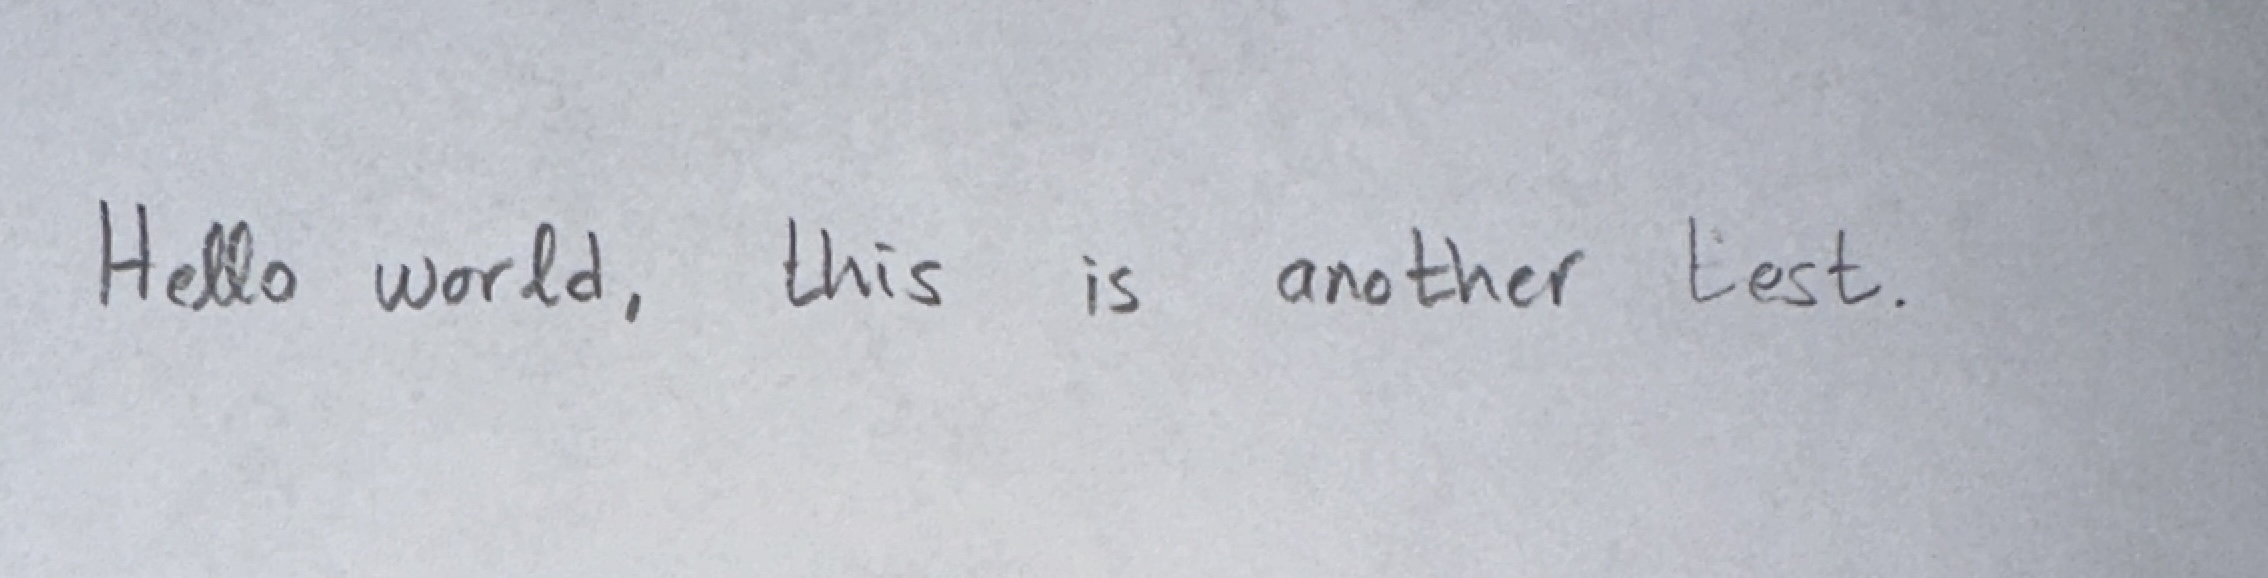 Hello world, this is another test.